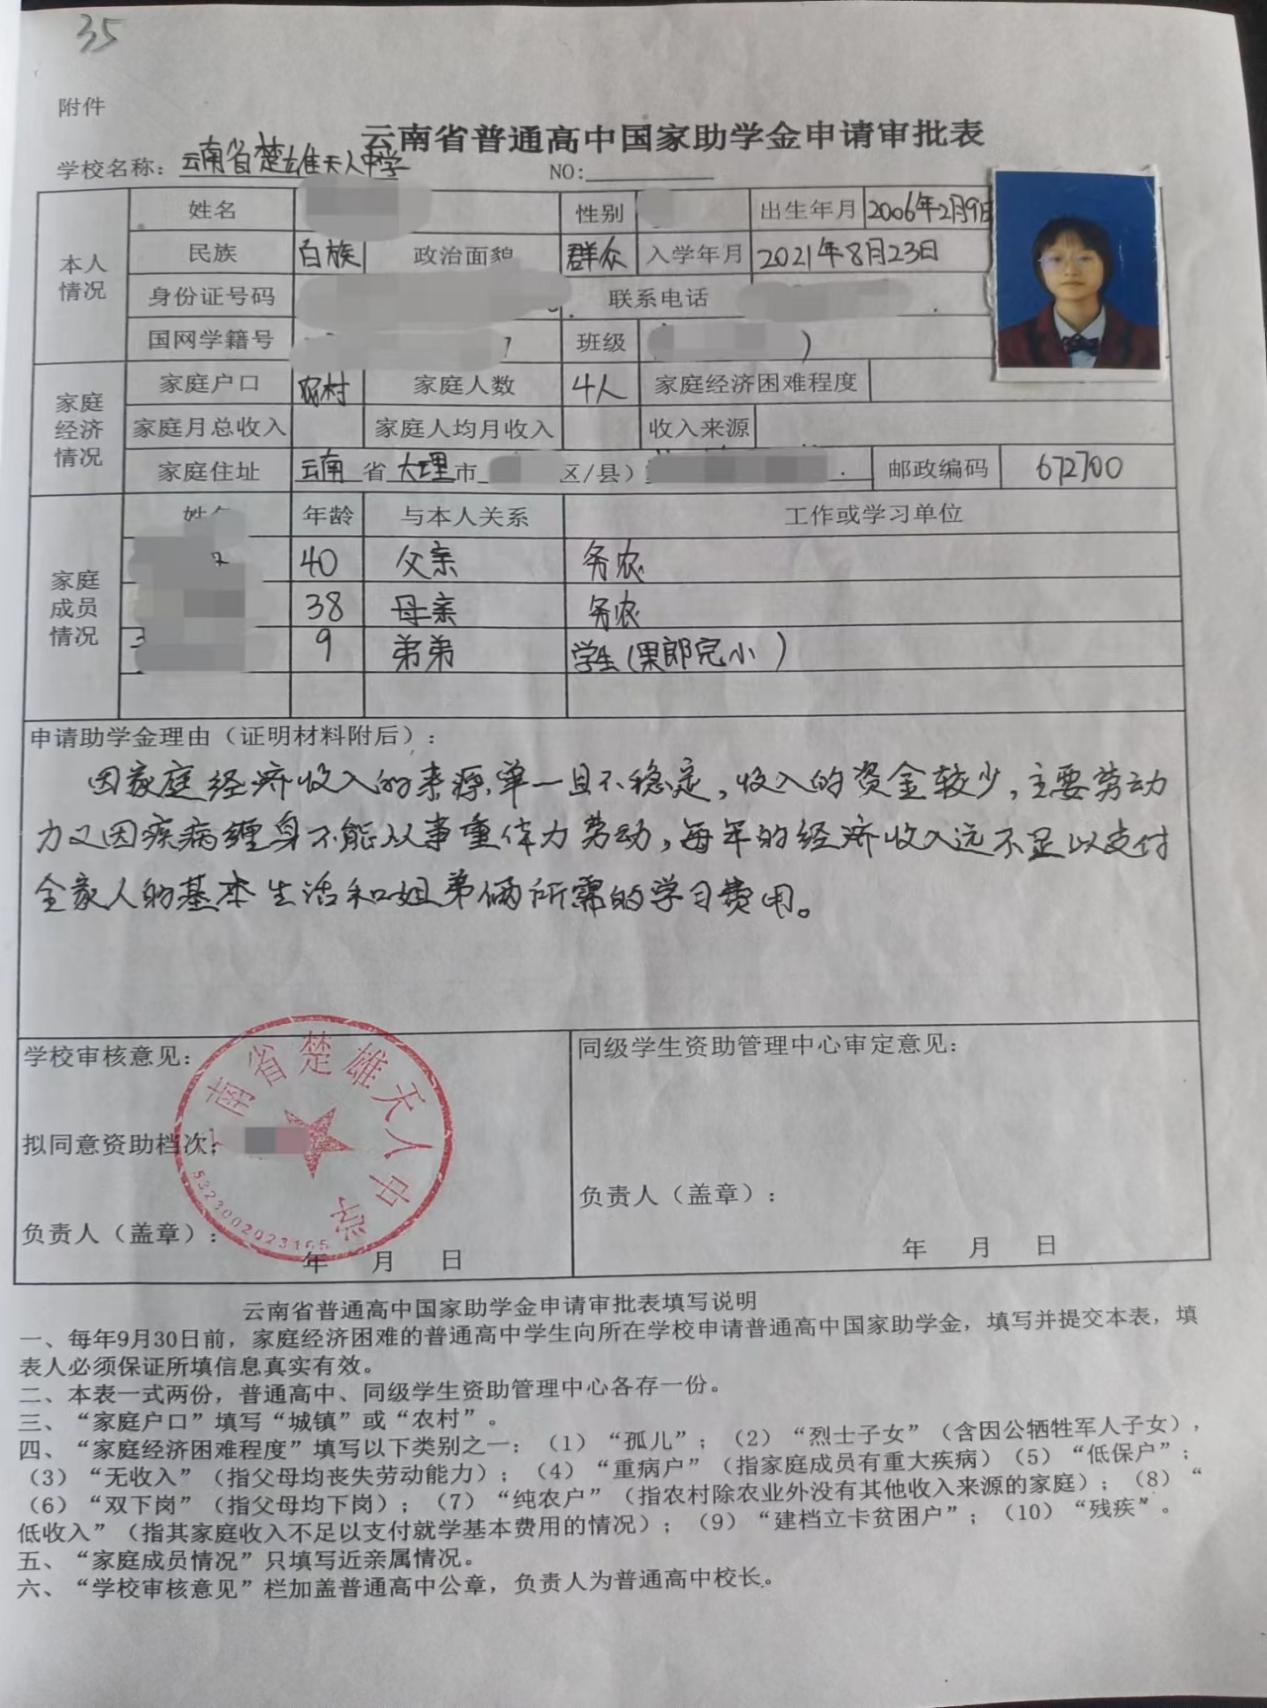 35
附件
云南省普通高中国家助学金申请审批表
学校名称：云南省楚雄天人中学 NO:
本人情况
姓名 性别 出生年月 2006年2月9日
民族 白族 政治面貌 群众 入学年月 2021年8月23日
身份证号码 联系电话
国网学籍号 班级 )
家庭经济情况
家庭户口 农村 家庭人数 4人 家庭经济困难程度
家庭月总收入 家庭人均月收入 收入来源
家庭住址 云南 省 大理 市 区/县） 邮政编码 672700
家庭成员情况
姓名 年龄 与本人关系 工作或学习单位
40 父亲 务农
38 母亲 务农
9 弟弟 学生(果郎完小)
申请助学金理由（证明材料附后）：
因家庭经济收入的来源单一且不稳定，收入的资金较少，主要劳动
力又因疾病缠身不能从事重体力劳动，每年的经济收入远不足以支付
全家人的基本生活和姐弟俩所需的学习费用。
学校审核意见： 同级学生资助管理中心审定意见：
拟同意资助档次：
负责人（盖章）： 负责人（盖章）：
年 月 日 年 月 日
南省楚雄天人中学
5323002023165
云南省普通高中国家助学金申请审批表填写说明
一、每年9月30日前，家庭经济困难的普通高中学生向所在学校申请普通高中国家助学金，填写并提交本表，填
表人必须保证所填信息真实有效。
二、本表一式两份，普通高中、同级学生资助管理中心各存一份。
三、“家庭户口”填写“城镇”或“农村”。
四、“家庭经济困难程度”填写以下类别之一：（1）“孤儿”；（2）“烈士子女”（含因公牺牲军人子女），
（3）“无收入”（指父母均丧失劳动能力）；（4）“重病户”（指家庭成员有重大疾病）（5）“低保户”；
（6）“双下岗”（指父母均下岗）；（7）“纯农户”（指农村除农业外没有其他收入来源的家庭）；（8）“
低收入”（指其家庭收入不足以支付就学基本费用的情况）；（9）“建档立卡贫困户”；（10）“残疾”。
五、“家庭成员情况”只填写近亲属情况。
六、“学校审核意见”栏加盖普通高中公章，负责人为普通高中校长。